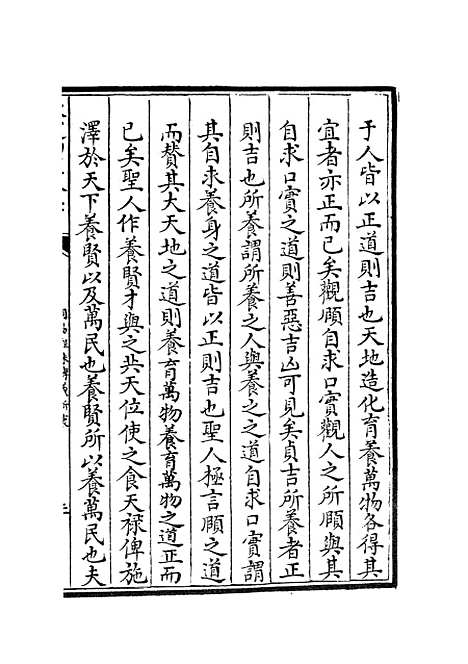 于人皆以正道則吉也天地造化育養萬物各得其
宜者亦正而已矣觀頤自求口實觀人之所頤與其
自求口實之道則善惡吉凶可見矣貞吉所養者正
則吉也所養謂所養之人與養之之道自求口實謂
其自求養身之道皆以正則吉也聖人極言頤之道
而賛其大天地之道則養育萬物養育萬物之道正而
已矣聖人作養賢才與之共天位使之食天禄俾施
澤於天下養賢以及萬民也養賢所以養萬民也夫